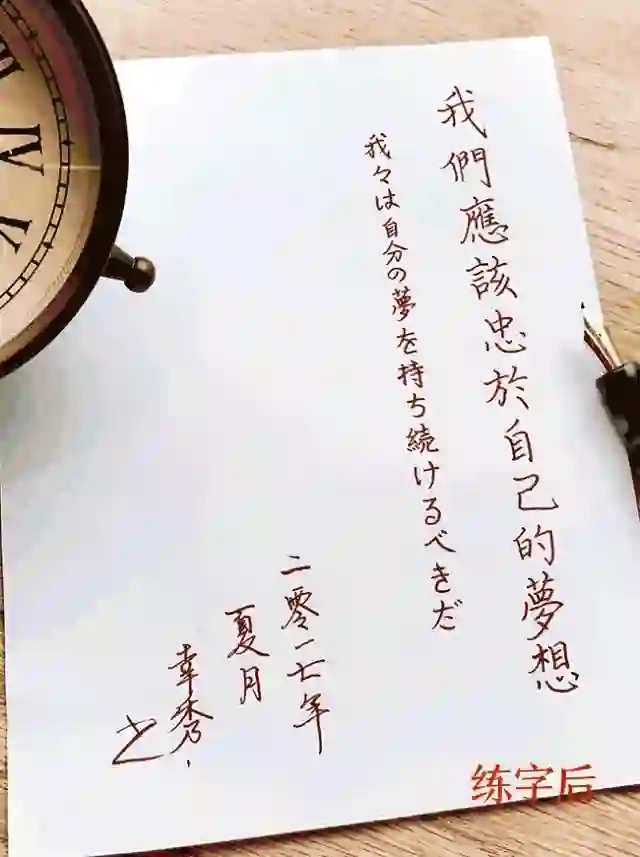 我們應該忠於自己的夢想
我々は自分の夢を持ち続けるべきだ
二零一七年
夏月
幸秀
练字后
IV
V